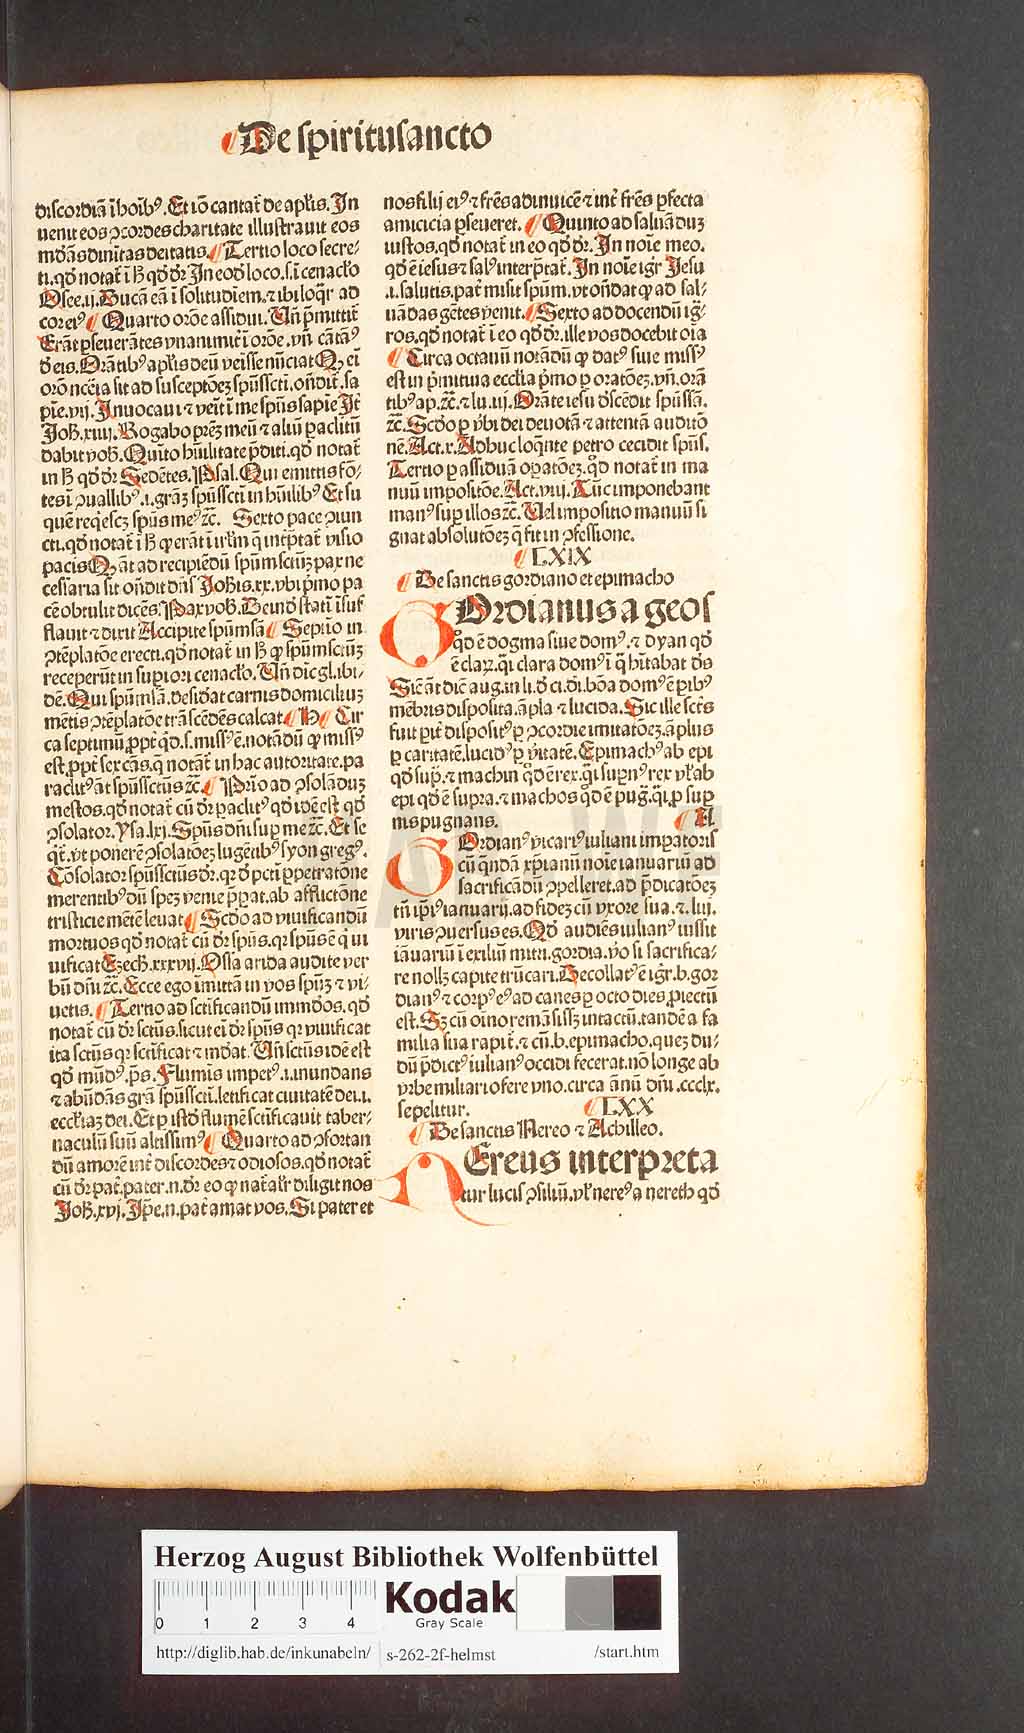 De spiritusancto
discordiā ī hoīb⁹. Et iō cantat̄ de apl̓is. In
uenit eos ꝯcordes charitate illustrauit eos
mūdās diuinitas deitatis. Tertio loco secre-
ti. qd̄ notat̄ ī hͦ qd̄ dr̄. In eodē loco. s. ī cenacl̓o
Osee. ij. Ducā eā ī solitudinem. ⁊ ibi loq̄r ad
cor ei⁹ Quarto orōe assidui. Vn̄ p̄mittit̄
Erāt ꝑseuerātes vnanimit̄ ī orōe. vn̄ cātat̄
d̓ eis. Orātib⁹ apl̓is deū veisse nūciat Qꝫ eī
orō ncc̄ia sit ad susceptōeꝫ spūsscti. ōndit̄. sa
pīe. vij. Inuocaui ⁊ venit ī me spūs sapīe It̄
Joh̄. xiiij. Rogabo prēꝫ meū ⁊ aliū paclitū
dabit vob̄. Quīto hūilitate p̄diti. qd̄ notat̄
in hͦ qd̄ dr̄ Sedētes. Psal. Qui emittis fō-
tes ī ꝯuallib⁹. i. grāꝫ spūsscti in hūilib⁹ Et su
quē reqescꝫ spūs me⁹ ⁊c̄. Sexto pace ꝯiun
cti. qd̄ notat̄ ī hͦ ꝙ erāt ī irl̓m q̄ intp̄tat̄ visio
pacis Qꝫ āt ad recipiēdū spūmsctūꝫ pax ne
cessaria sit ōndit dn̄s Johīs. xx. vbi p̄mo pa
cē obtulit dicēs. Pax vob̄. Deinde statī īsuf
flauit ⁊ dixit Accipite spūmsā Septīo in
ꝯtēplatōe erecti. qd̄ notat̄ in hͦ ꝙ spūmsctūꝫ
receperūt in superiori cenacl̓o. Vn̄ dic̄ gl. ibi-
dē. Qui spūmsā. desidat carnis domiciliūꝫ
mētis ꝯtēplatōe trāscēdēs calcat H Cir
ca septimū. ꝓpt̓ qd̄. s. miss⁹ ē. notādū ꝙ miss⁹
est. ꝓpt̓ sex cās. q̄ notat̄ in hac autoritate. pa
raclit⁹ āt spūssctūs ⁊c̄. Prīo ad ꝯsolāduꝫ
mestos. qd̄ notat̄ cū dr̄ paclit⁹ qd̄ idē est qd̄
ꝯsolator. Ysa. lxi. Spūs dn̄i sup me ⁊c̄. Et se
q̄t̄. vt ponerē ꝯsolatōeꝫ lugētib⁹ syon greg⁹.
Cōsolator spūssctūs dr̄. qꝛ d̓ pcti ꝑpetratōne
merentib⁹ dū spez venie p̄pat. ab afflictōne
tristicie mētē leuat Scdo ad viuificandū
mortuos qd̄ notat̄ cū dr̄ spūs. qꝛ spūs ē q̄ ui
uificat Ezech̄. xxxvij. Ossa arida audite ver
bū dn̄i ⁊c̄. Ecce ego īmittā in vos spūꝫ ⁊ vi-
uetis. Tertio ad sctificandū immūdos. qd̄
notat̄ cū dr̄ sctūs. sicut ei dr̄ spūs qꝛ viuificat
ita sctūs qꝛ sctificat ⁊ mūdat. Vn̄ sctūs idē est
qd̄ mūd⁹. p̄s. Flumīs impet⁹. i. inundans
⁊ abūdās grā spūsscti. letificat ciuitatē dei. i.
eccl̓iaꝫ dei. Et ꝑ istd̄ flumē sctificauit taber-
naculū suū altissim⁹ Quarto ad ꝯfortan
dū amorē int̓ discordes ⁊ odiosos. qd̄ notat̄
cū dr̄ pat̓. pater. n. dr̄ eo ꝙ nat̓alr̄ diligit nos
Joh̄. xvj. Ip̄e. n. pat̓ amat vos. Si pater et
nos filij ei⁹ ⁊ frēs adinuicē ⁊ int̓ frēs ꝑfecta
amicicia ꝑseueret. Quinto ad saluāduꝫ
iustos. qd̄ notat̄ in eo qd̄ dr̄. In noīe meo.
qd̄ ē iesus ⁊ sal⁹ interp̄tat̄. In noīe igr̄ Jesu
.i. salutis. pat̓ misit spūm. vt ōndat ꝙ ad sal-
uādas gētes venit. Sexto ad docendū ig̓-
ros. qd̄ notat̄ ī eo qd̄ dr̄. ille vos docebit oīa
Circa octauū notādū ꝙ dat⁹ siue miss⁹
est in p̄mitiua eccl̓ia p̄mo ꝑ oratōeꝫ. vn̄. orā
tib⁹ ap. ⁊c̄. ⁊ lu. iij. Orāte iesu d̓scēdit spūssā.
⁊c̄. Scdo ꝑ v̓bi dei deuotā ⁊ attentā auditō
nē. Act. x. Adhuc loq̄nte petro cecidit spūs.
Tertio ꝑ assiduā oꝑatōeꝫ. qd̄ notat̄ in ma
nuū impositōe. Act. viij. Tūc imponebant
man⁹ sup illos ⁊c̄. Vel impositio manuū si
gnat absolutōeꝫ q̄ fit in ꝯfessione.
LXIX
De sanctis gordiano et epimacho
GOrdianus a geos
qd̄ ē dogma siue dom⁹. ⁊ dyan qd̄
ē clarꝫ. q̄i clara dom⁹ ī q̄ hītabat d̓s
Sic āt dic̄ aug. in li. d̓ ci. di. bōa dom⁹ ē ꝑ ib⁹
mēbris disposita. āpla ⁊ lucida. Sic ille sct̄s
fuit ꝑit̄ disposit⁹ ꝑ ꝯcordie imitatōeꝫ. āplus
ꝑ caritatē. lucid⁹ ꝑ v̓itatē. Epimach⁹ ab epi
qd̄ sup̄. ⁊ machin qd̄ ē rex. q̄i supn⁹ rex vl̓ ab
epi qd̄ ē supra. ⁊ machos qd̄ ē pug. q̄i. ꝑ sup
nis pugnans. A
GOrdian⁹ vicari⁹ iuliani impatoris
cū q̄ndā xp̄ianū noīe ianuariū ad
sacrificādū ꝯpelleret. ad p̄dicatōeꝫ
tn̄ ip̄i⁹ ianuarij. ad fidez cū vxore sua. ⁊. liij.
viris ꝯuersus es. Qd̄ audiēs iulian⁹ iussit
iāuariū ī exiliū mitti. gordia. vo si sacrifica-
re nollꝫ capite trūcari. Decollat⁹ ē igr̄. b. gor
dian⁹ ⁊ corp⁹ e⁹ ad canes ꝑ octo dies ꝓiectū
est. Sꝫ cū oīno remāsissꝫ intactū. tandē a fa
milia sua rapit̄. ⁊ cū. b. epimacho. quez du-
dū p̄dict⁹ iulian⁹ occidi fecerat. nō longe ab
vrbe miliario fere vno. circa ānū dn̄i. ccclx.
sepelitur. LXX
De sanctis Nereo ⁊ Achilleo.
NEreus interpreta
tur lucis ꝯsiliū. vl̓ nere⁹ a nereth qd̄
Herzog August Bibliothek Wolfenbüttel
0 1 2 3 4
Kodak
Gray Scale
http://diglib.hab.de/inkunabeln/
s-262-2f-helmst
/start.htm